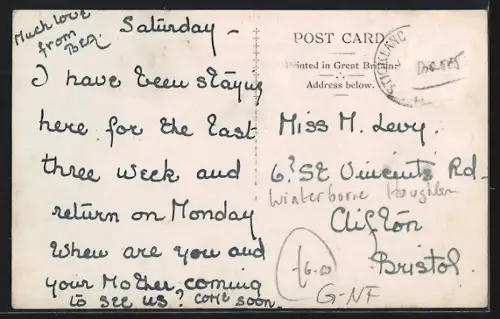 Much love
from
Bea.
Saturday -
I have been staying
here for the last
three week and
return on Monday
When are you and
your Mother coming
to see us? come soon.
POST CARD
Printed in Great Britain.
Address below.
STICKLAND
DORSET
Miss M. Levy.
6? St Vincents Rd-
Winterborne Houghton
Clifton
Bristol.
£6-00
G-NF